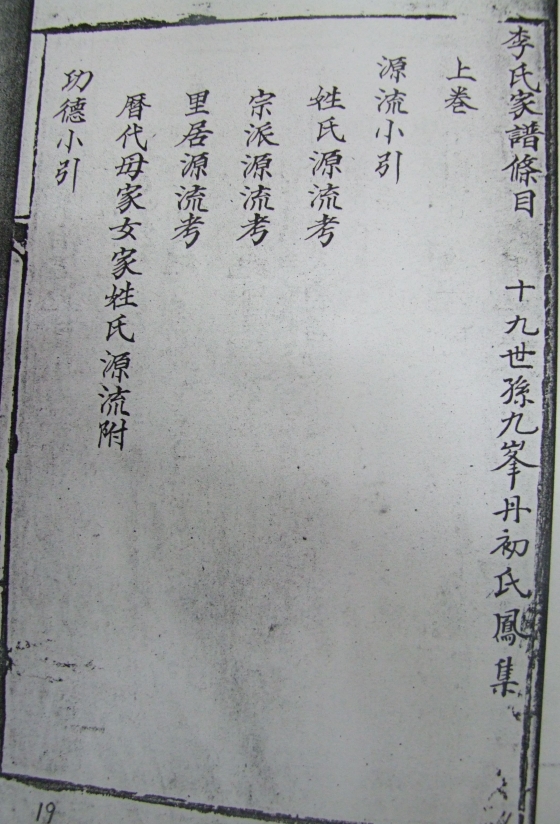 李氏家譜條目　十九世孫九峯丹初氏鳳集
上巻
源流小引
姓氏源流考
宗派源流考
里居源流考
曆代母家女家姓氏源流附
功德小引
19